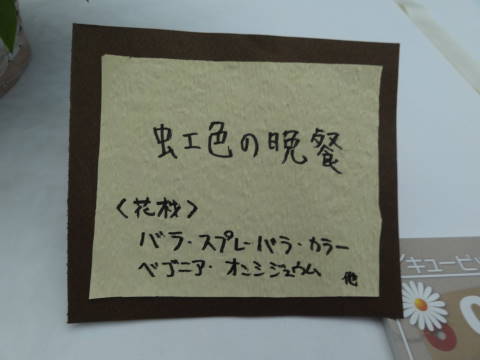 虹色の晩餐
〈花材〉
バラ・スプレーバラ・カラー
ベゴニア・オンシジュウム 他
キューピッ